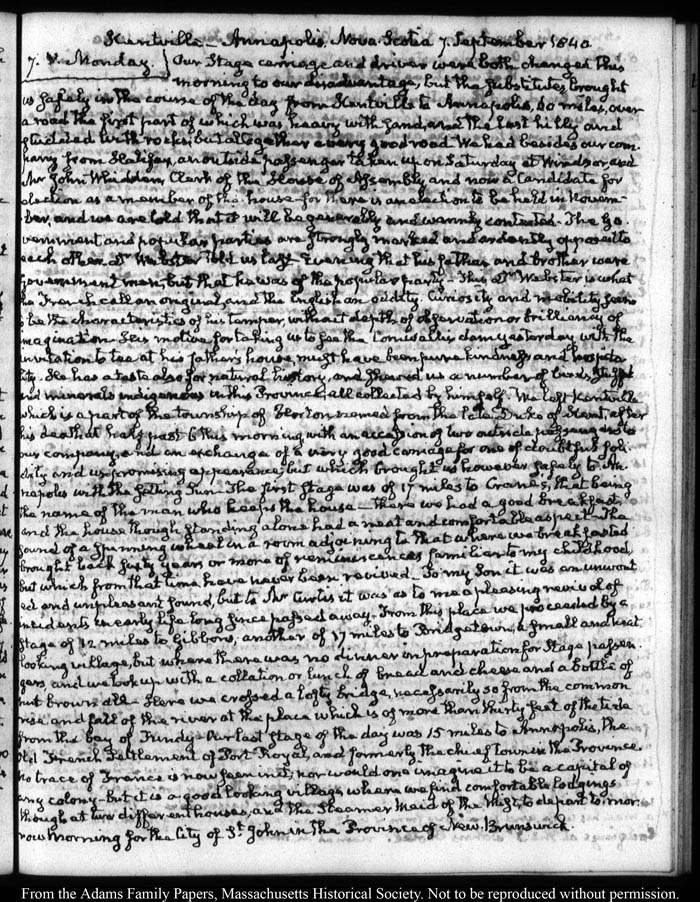 Kentville – Annapolis, Nova Scotia 7. September 1840
7. V. Monday. Our Stage carriage and driver were both changed this
morning to our disadvantage, but the substitutes brought
us safely in the course of the day from Kentville to Annapolis, 80 miles, over
a road the first part of which was heavy with sand, and the last hilly and
studded with rocks; but altogether a very good road. We had besides our com-
pany from Halifax, an outside passenger taken up on Saturday at Windsor, and
Mr John Whidden, Clerk of the House of Assembly and now a Candidate for
election as a member of the house for there is an election to be held in Novem-
ber, and we are told that it will be generally and warmly contested. The Go-
vernment and popular parties are strongly marked and ardently opposed to
each other. Dr Webster told us last Evening that his father and brother were
Government men, but that he was of the popular party – This Dr Webster is what
the French call an original, and the English an oddity. Curiosity and mobility seem
to be the characteristics of his temper, without depth of observation or brilliancy of
imagination. His motive for taking us to see the Cornwallis dam yesterday with the
invitation to tea at his father's house, must have been pure kindness and hospita-
lity. He has a taste also for natural history, and shewed us a number of birds, stuffed
and minerals indigenous in this Province, all collected by himself. We left Kentville
which is a part of the township of Horton named from the late Duke of Kent, after
his death at half past 6 this morning with an accession of two outside passengers to
our company, and an exchange of a very good carriage for one of doubtful soli-
dity and unpromising appearance, but which brought us however safely to An-
napolis with the setting Sun. The first stage was of 17 miles to Cranes, that being
the name of the man who keeps the house – there we had a good breakfast,
and the house though standing alone had a neat and comfortable aspect – The
sound of a Spinning wheel in a room adjoining to that where we breakfasted
brought back sixty years or more of reminiscences familiar to my childhood,
but which from that time have never been revived – To my Son it was an unwont-
ed and unpleasant sound, but to Mr Curtis it was as to me a pleasing revival of
incidents in early life long since passed away. From this place we proceeded by a
stage of 12 miles to Gibbons, another of 17 miles to Bridgetown, a small and neat
looking village, but where there was no dinner in preparation for Stage passen-
gers and we took up with a collation or lunch of bread and cheese and a bottle of
nut brown ale – Here we crossed a lofty bridge, necessarily so from the common
rise and fall of the river at the place which is of more than thirty feet of the tide
from the bay of Fundy – Our last stage of the day was 15 miles to Annapolis, the
Old French Settlement of Port Royal, and formerly the chief town in the Province.
No trace of France is now seen in it, nor would one imagine it to be a capital of
any colony – but it is a good looking village where we find comfortable lodgings
though at two different houses, and the Steamer Maid of the Mist, to depart to mor-
row morning for the City of St. John in the Province of New Brunswick.
From the Adams Family Papers, Massachusetts Historical Society. Not to be reproduced without permission.